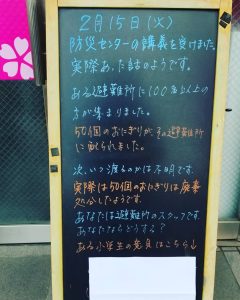 2月15日(火)
防災センターの講義を受けました。
実際あった話のようです。
ある避難所に100名以上の
方が集まりました。
50個のおにぎりが、その避難所
に配られました。
次、いつ渡るのかは不明です。
実際は50個のおにぎりは廃棄
処分したようです。
あなたは避難所のスタッフです。
あなたならどうする?
ある小学生の発言はこちら